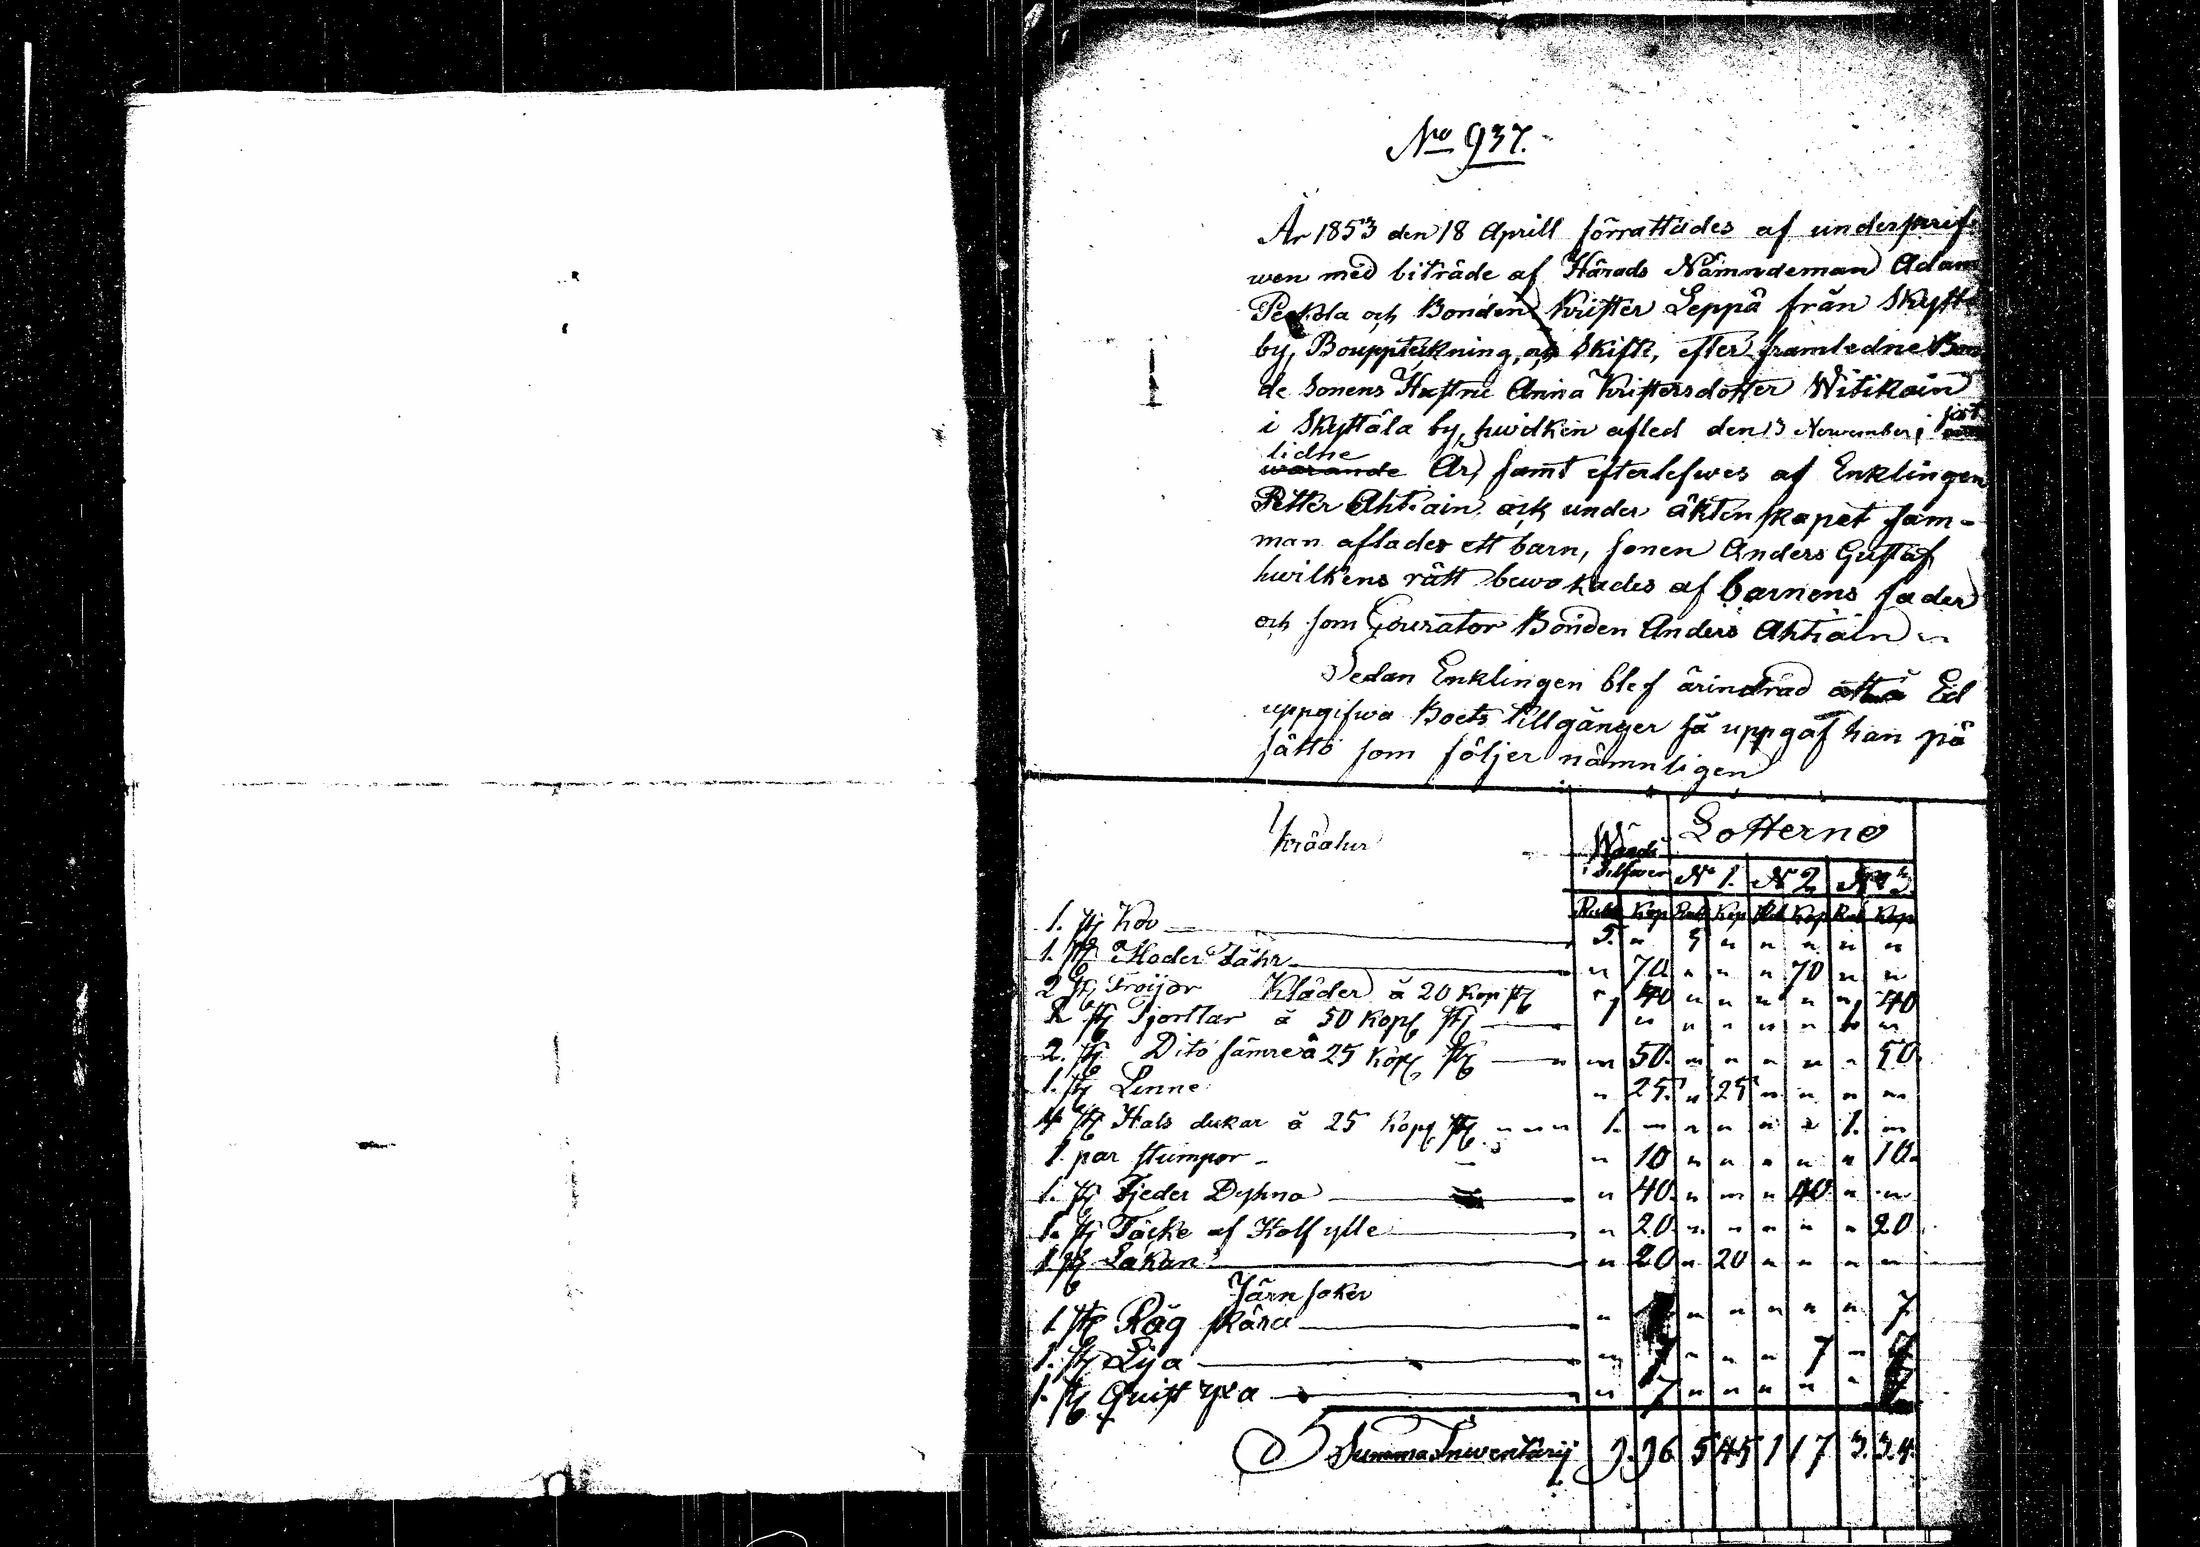 No 937.
År 1853 den 18 Aprill förrattades af underskref-
wen med biträde af Härads Nämndeman Adam
Pekola och Bonden Krister Leppä från Skytt
by, Bouppteckning, och Skifte, efter framledne Bon
de Sonens Hustru Anna Kristersdotter Witikain
i Skyttälä by, hwilken afled den 13 Nowember i sist
lidne
warande År, samt efterlefwes af Enklingen
Petter Ahtiain ock under äktenskapet sam-
man aflades ett barn, sonen Anders Gustaf
hwilkens rätt bewakades af barnens fader
och som Courator Bonden Anders Ahtiain
Sedan Enklingen blef ärindrad Ed
uppgifwa Boets tillgånger så uppgaf han på
sätto som följer nämnligen
Kräatur Wärde i Silfwer Lotterna
No 1. No 2 No 3
Rub Kop Rub Kop Rub Kop Rub Kop
1. st Ko 5. " 5 " " " " "
1. st Moder Fåhr " 70 " " " 70 " "
Kläder
2 st Troijor à 20 Kop st " 40 " " " " " 40
2 st Tjortlar à 50 Kop st 1 " " " " " 1 "
2. st Dito sämre à 25 Kop st " 50. " " " " " 50.
1. st Linne " 25. " 25 " " " "
4 st Hals dukar à 25 Kop st 1. " " " " " 1. "
1 par stumpor " 10 " " " " " 10.
1. st Fjeder Dyhna " 40. " " " 40 " "
1. st Täcke af Half ylle " 20. " " " " " 20
1 st Lakan " 20 " 20 " " " "
Järn saker
1 st Råg skära " " " " " " 7.
1. st Lija " 7 " " " 7 "
1. st Quist yxa " 7 " " " " "
Summa Inwentarij 9. 96 5 45 1 17 3. 34.